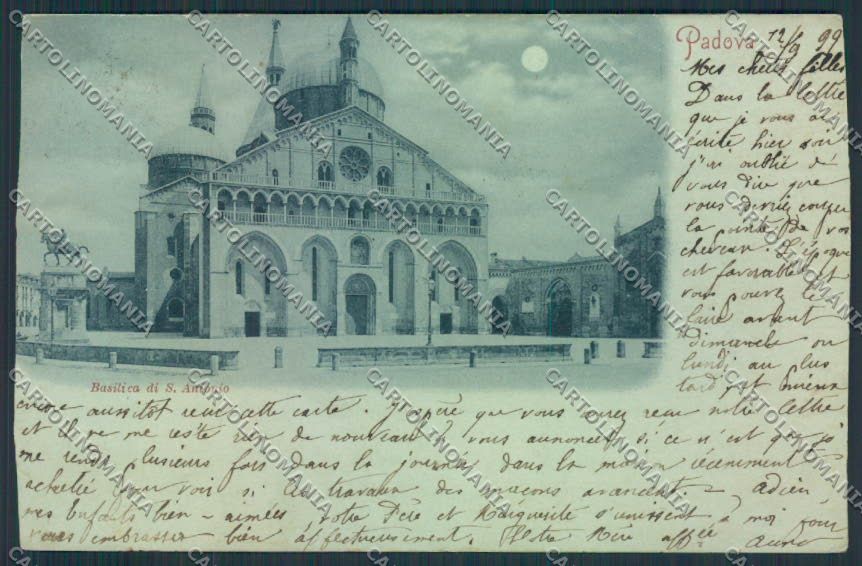 Padova 12/9 99
Mes chères filles
Dans la lettre
que je vous ai
écrite hier soir
j'ai oublié de
vous dire que
vous devriez couper
la pointe de vos
cheveux. L'époque
est favorable et
vous pouvez le
faire avant
dimanche ou
lundi au plus
tard, et mieux
Basilica di S. Antonio
encore aussitot reçu cette carte. J'espère que vous aurez reçu notre lettre
et il ne me reste rien de nouveau à vous annoncer, si ce n'est que je
me rends plusieurs fois dans la journée dans la maison récemment
achetée pour voir si les travaux des maçons avancent - adieu
mes enfants bien-aimées, votre Père et Marguerite s'unissent à moi pour
vous embrasser bien affectueusement. Votre Mère aff.ée
CARTOLINOMANIA